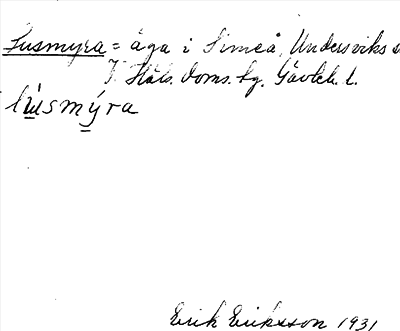 Lusmyra = äga i Simeå, Undersviks s
V. Häls. doms. lg. Gävleb. l.
lùsmýra
Erik Eriksson 1931